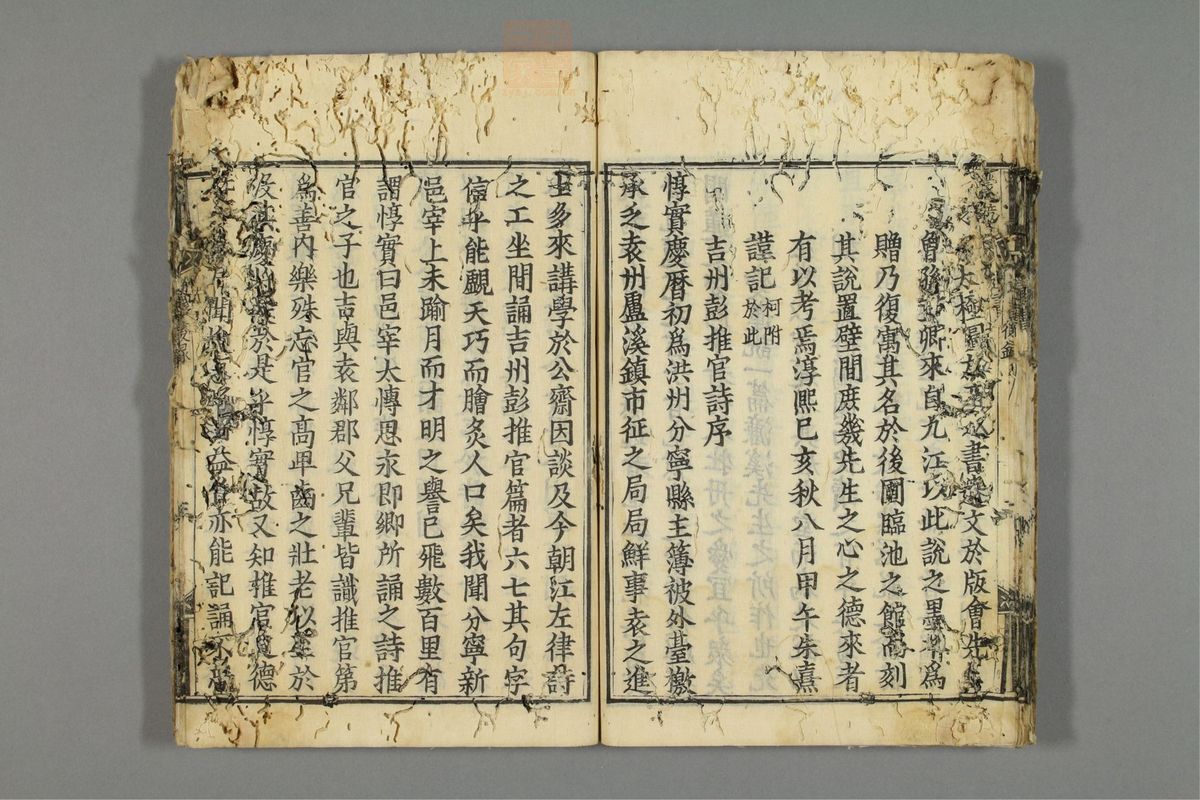 太極圖 書 文於版會先生
曾孫 卿來自九江以此說之墨本爲
贈乃復寓其名於後圃臨池之館 刻
其說置壁間庶幾先生之心之德來者
有以考焉淳熙己亥秋八月甲午朱熹
謹記柯附於此
吉州彭推官詩序
惇實慶曆初爲洪州分寧縣主簿被外臺檄
承乏袁州盧溪鎮市征之局局鮮事袁之進
士多來講學於公齋因談及今朝江左律詩
之工坐間誦吉州彭推官篇者六七其句字
信乎能覷天巧而膾炙人口矣我聞分寧新
邑宰上未踰月而才明之譽已飛數百里有
謂惇實曰邑宰太博思永即鄉所誦之詩推
官之子也吉與袁鄰郡父兄輩皆識推官第
爲善內樂殊忘官之高卑齒之壯老以至於
沒其慶 於是乎惇實故又知推官 德
聞 亦能記誦不